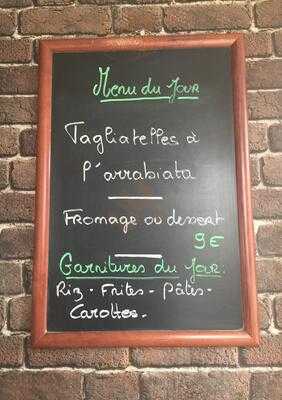 Menu du Jour
Tagliatelles à
l'arrabiata
Fromage ou dessert
9€
Garnitures du Jour:
Riz - Frites - Pâtes -
Carottes -